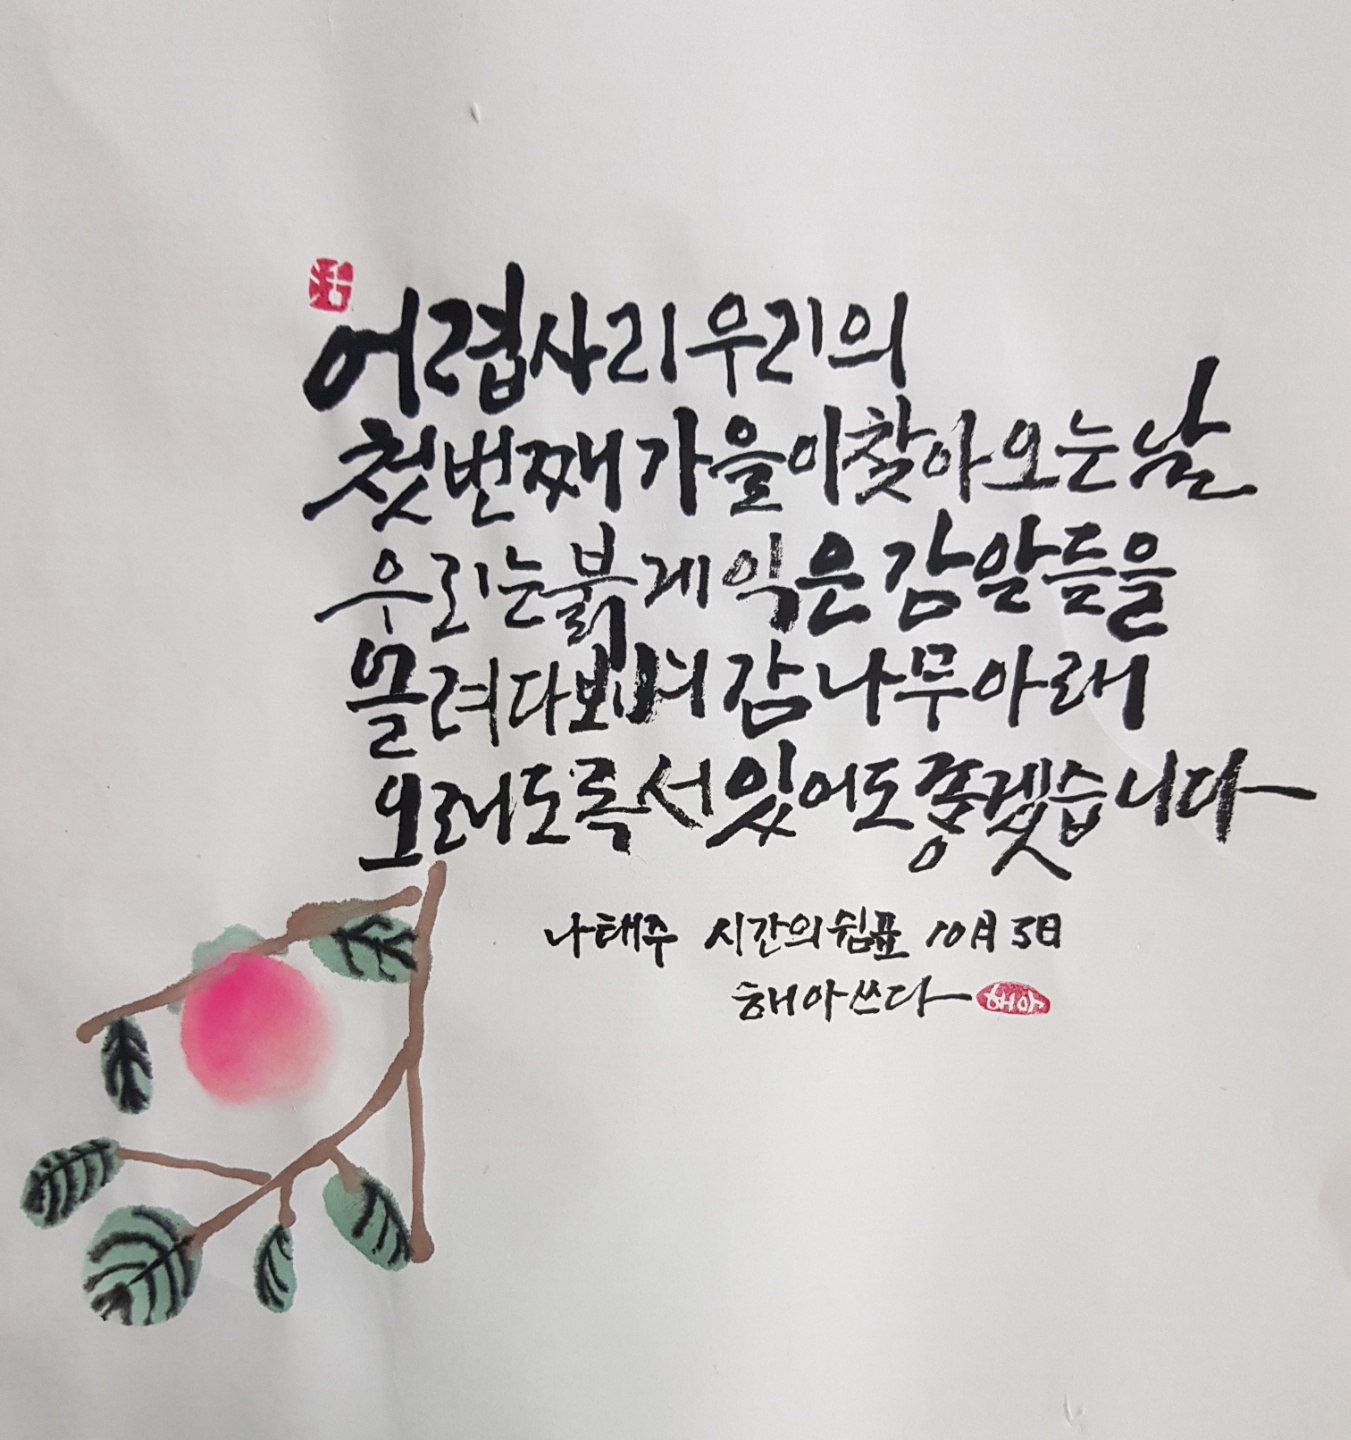 어렵사리 우리의
첫번째 가을이 찾아오는 날
우리는 붉게 익은 감알들을
올려다보며 감나무 아래
오래도록 서 있어도 좋겠습니다
나태주 시간의 쉼표 10月 3日
해아 쓰다 해아